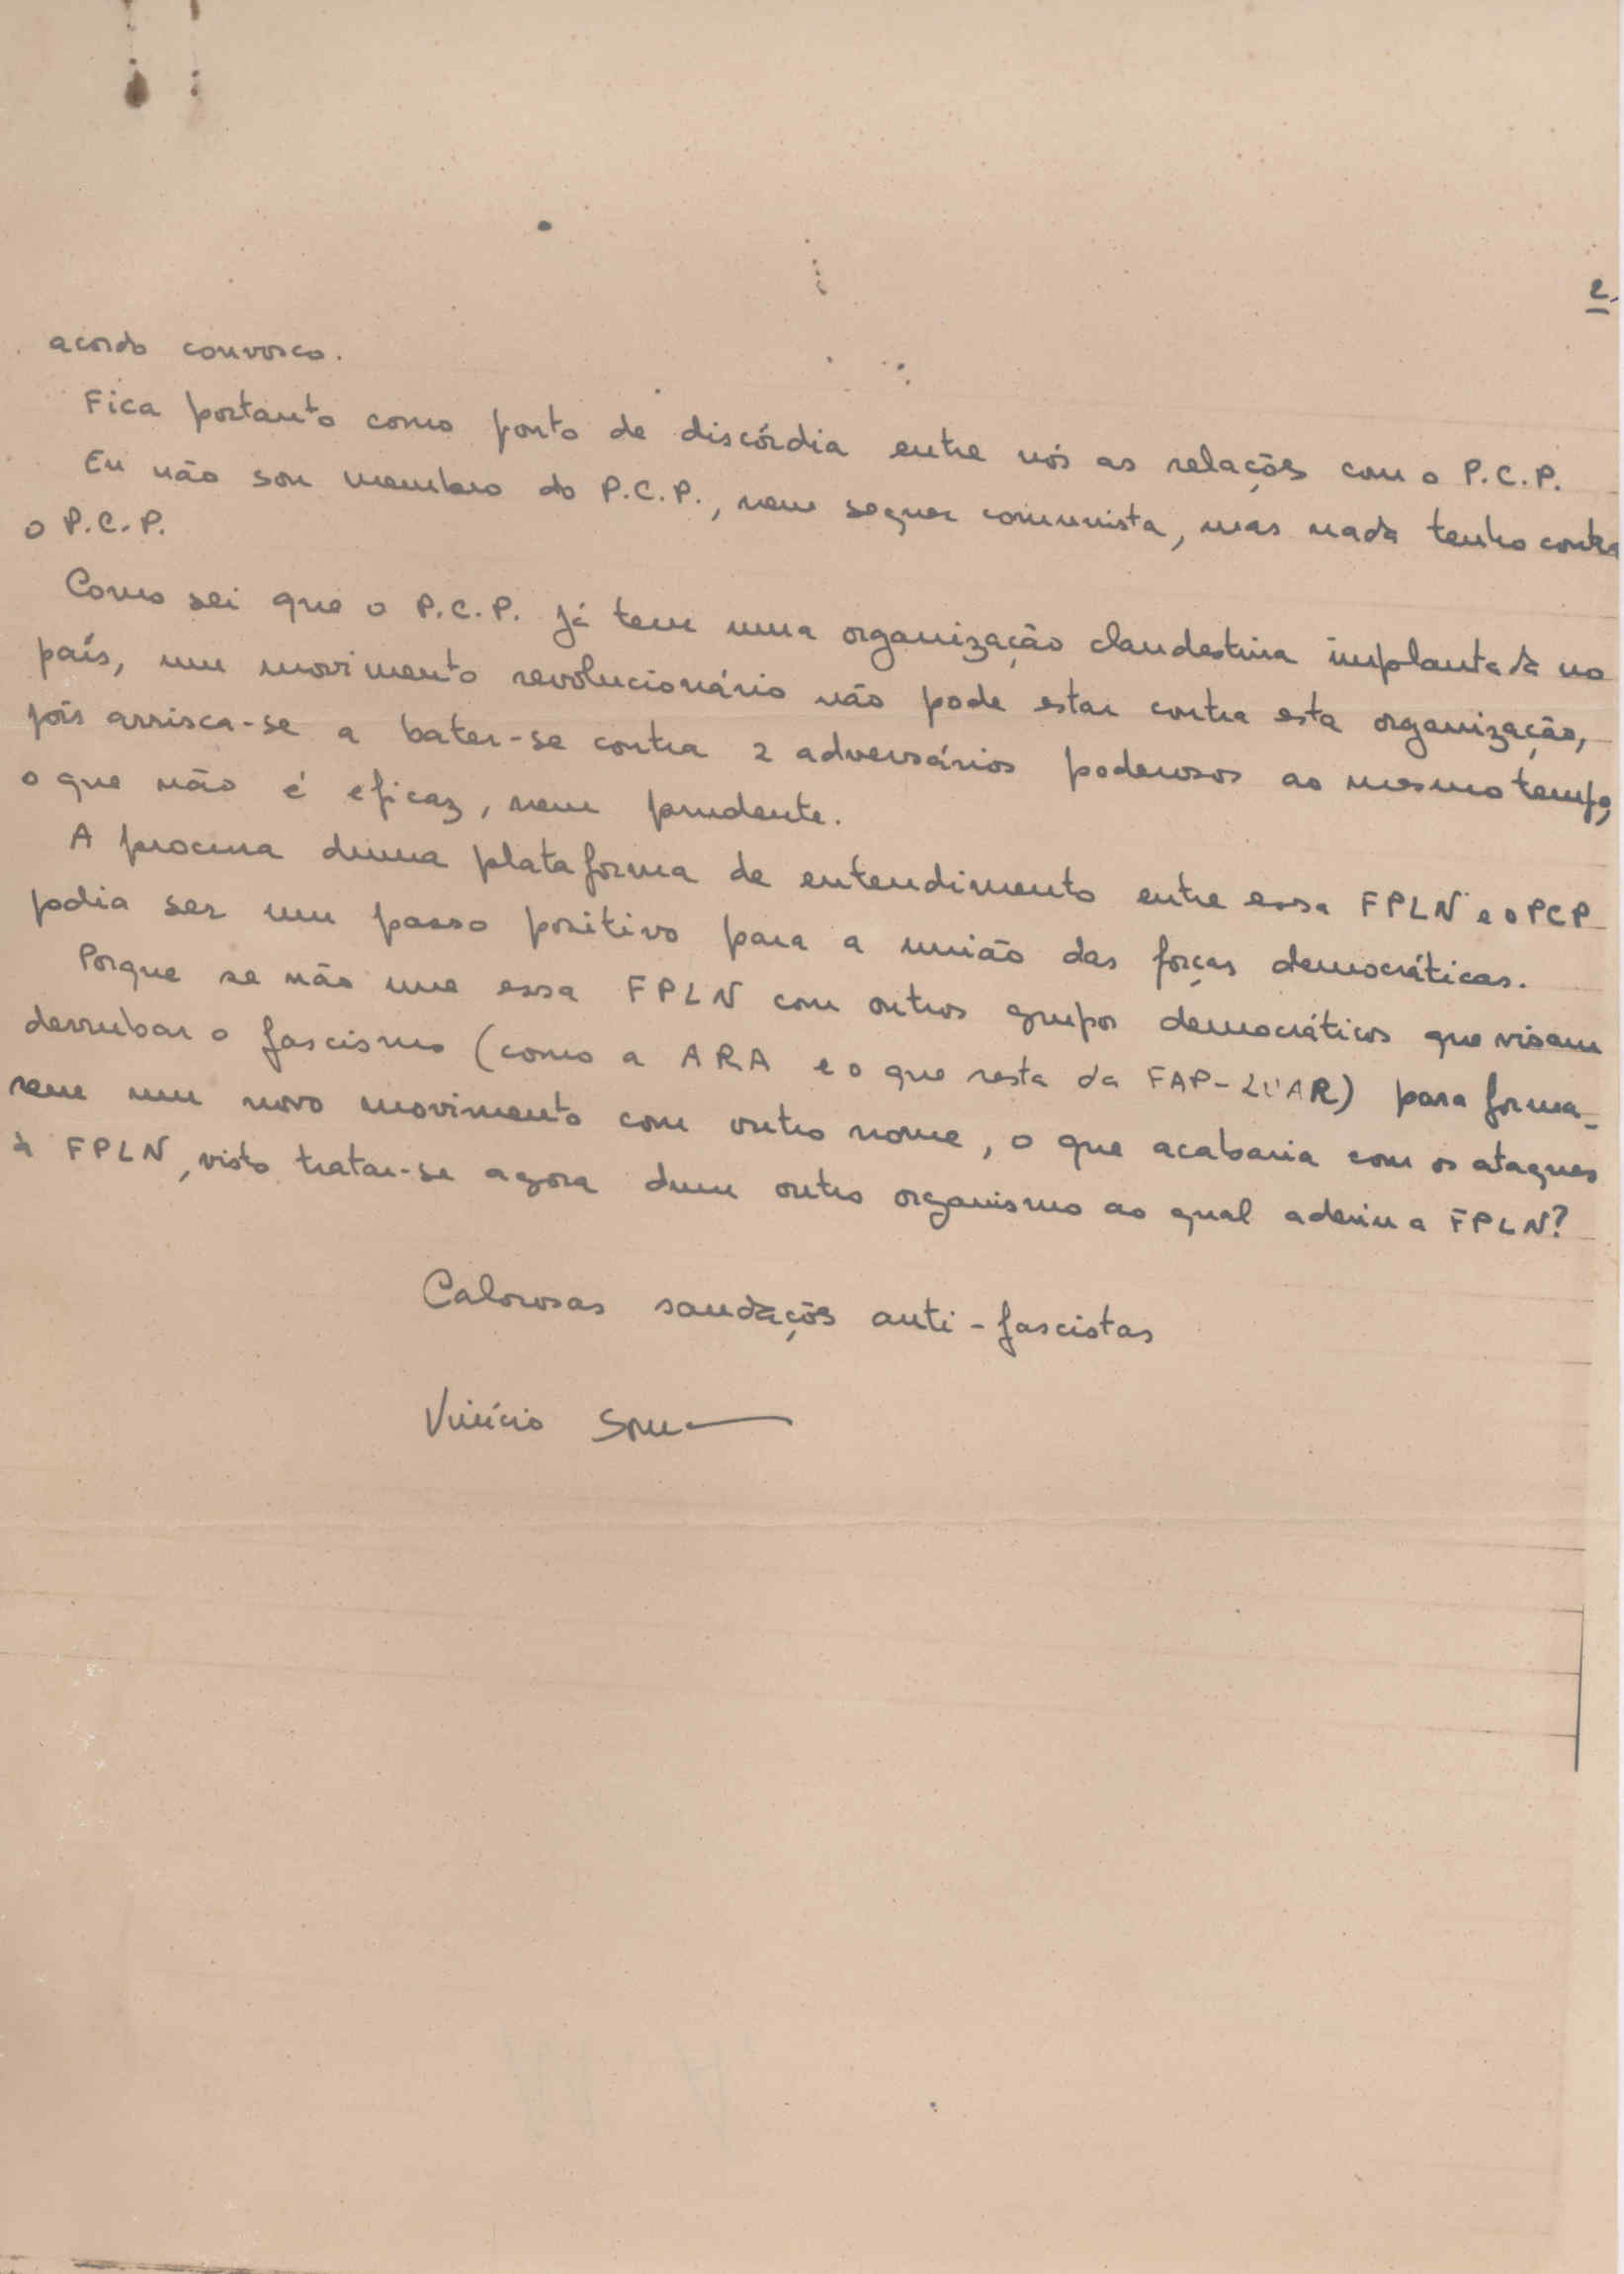 2.
acordo convosco.
Fica portanto como ponto de discórdia entre nós as relações com o P.C.P.
Eu não sou membro do P.C.P., nem sequer comunista, mas nada tenho contra
o P.C.P.
Como sei que o P.C.P. já tem uma organização clandestina implantada no
país, um movimento revolucionário não pode estar contra esta organização,
pois arrisca-se a bater-se contra 2 adversários poderosos ao mesmo tempo,
o que não é eficaz, nem prudente.
A procura duma plataforma de entendimento entre essa FPLN e o PCP
podia ser um passo positivo para a união das forças democráticas.
Porque se não une essa FPLN com outros grupos democráticos que visam
derrubar o fascismo (como a ARA e o que resta da FAP-LUAR) para forma-
rem um novo movimento com outro nome, o que acabaria com os ataques
à FPLN, visto tratar-se agora dum outro organismo ao qual aderiu a FPLN?
Calorosas saudações anti-fascistas
Vinício